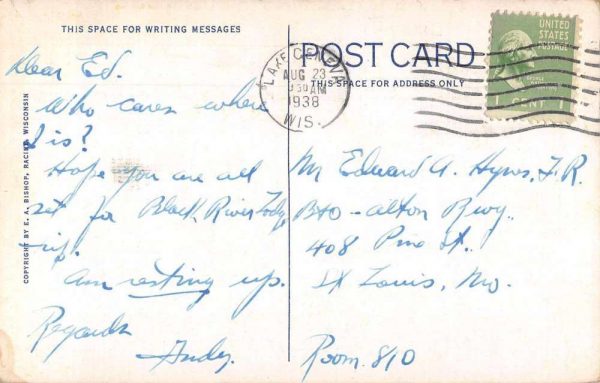 THIS SPACE FOR WRITING MESSAGES
Dear Ed.
Who cares where
I is?
Hope you are all
set for Black River Lodge
trip.
Am resting up.
Regards
Andy.
COPYRIGHT BY E. A. BISHOP, RACINE, WISCONSIN
POST CARD
THIS SPACE FOR ADDRESS ONLY
LAKE GENEVA
AUG 23
930 AM
1938
WIS.
UNITED
STATES
POSTAGE
1 CENT 1
Mr Edward A. Hynes, F.R.
B&O - Alton Rwy.
408 Pine St.
St Louis, Mo.
Room 810